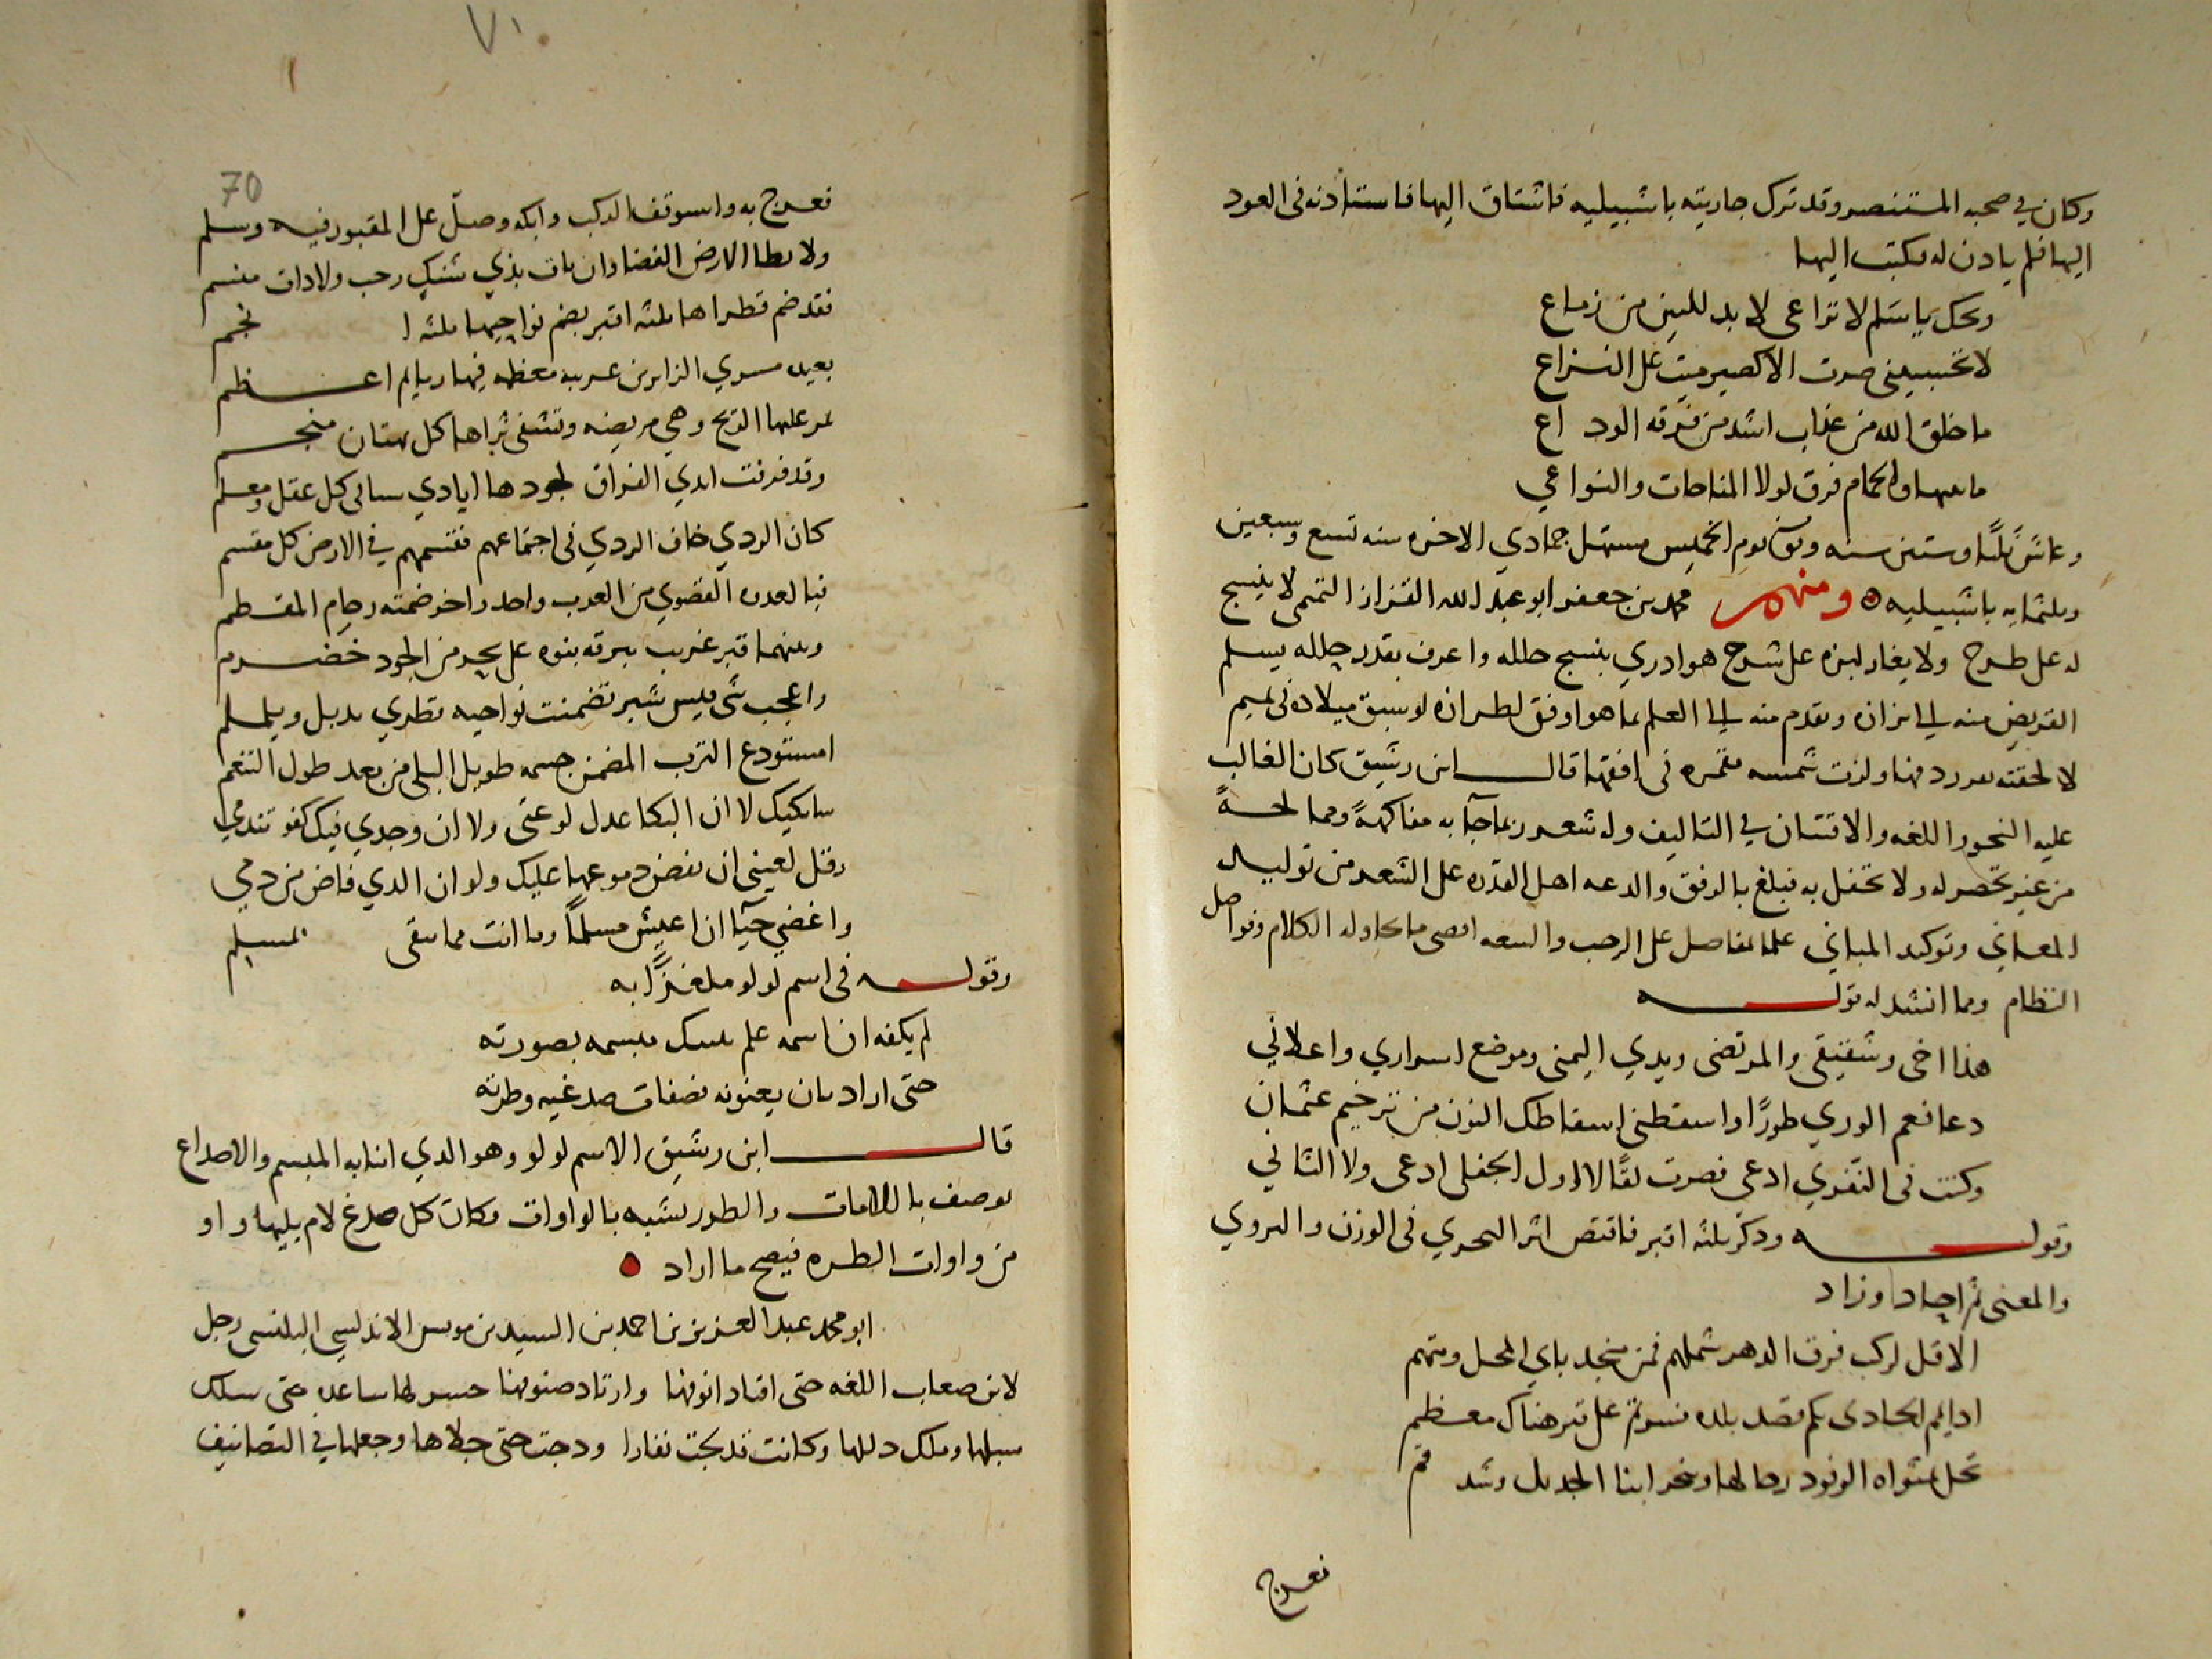 وكان في صحبه المستنصر وقد ترك جاريته باشبيليه فاشتاق اليها فاستأذنه فى العود
اليها فلم يادن له فكتب اليها
ويحك ياسَلم لا تراعى لا بد للبين من زماع
لا تحسبينى صبرت الا كصبر ميت على النزاع
ما خلق الله من عذاب اشد من فرقه الود اع
ما بينها والحمام فرق لولا المناحات والنواعي
وعاش ثلثا وستين سنه وتوفى يوم الخميس مستهل جمادي الاخره سنه تسع وسبعين
وثلثمايه باشبيليه ومنهم محمد بن جعفر ابو عبد الله القزاز التميمى لا ينسج
له على طرح ولا يغار لبزه على شرح هو ادري بنسج حلله واعرف بقدر جلله يسلم
القريض منه الي بزازه وتقدم منه الي العلم بما هو اوفق لطرازه لو سبق ميلاده فى تميم
لالحقته بفرزدقها ولزت شمسه بقمره فى افقها قال ابن رشيق كان الغالب
عليه النحو واللغه والافتنان في التاليف وله شعر ربما جآ به مفاكهةً وممالحةً
من غير تحصر له ولا تحفل به فبلغ بالرفق والدعه اهل القدره على الشعر من توليد
المعاني وتوكيد المباني علما بمفاصل على الرحب والسعه اقصى ما يحاوله الكلام وفواصل
النظام ومما انشد له قوله
هذا اخى وشقيقى والمرتضى ويدي اليمنى وموضع اسراري واعلاني
دعا فعم الوري طورًا واسقطنى اسقاطك النون من ترخيم عثمان
وكنت فى النقري ادعى فصرت لقًا لا اول الجفلى ادعى ولا الثاني
وقوله وذكر ثلثه اقبر فاقتص اثر البحري فى الوزن والروي
والمعنى ثم اجاد وزاد
الا قل لركب فرق الدهر شملهم فمن منجد باي المحل ومتهم
اذا لم الحادى بكم قصد بلده فسرتم على قبر هناك معظم
تحل بمثواه الوفود رحالها وينحر ابنا الجديل وشد قم
فعرج
٧٠
70
فعرج به واستوقف الركب وابكه وصلّ على المقبور فيه وسلم
ولا بطا الارض الفضا وان باف بذي شنكٍ رحب ولا ذات منسم
فقد ضم قطراها ثلثه اقبر بضم نواحيها ثلثه ا نجم
بعيد مسري الزايرين غريبه معظمه فيها رمايم اعظم
تمر عليها الريح وهي مريضه وتشفى ثراها كل هتان منجم
وقد فرقت ايدي الفراق لجودها ايادي سبا فى كل عقل ومعلم
كان الردي خاف الردي فى اجتماعهم فقسمهم في الارض كل مقسم
فبالعدوه القصوي من الغرب واحد واخر ضمته رجام المقطم
وبينهما قبر غريب ببرقه بنوه على بحر من الجود خضرم
واعجب شى خمس شبر تضمنت نواحيه قطري يذبل ويلملم
امستودع الترب المضمن جسمه طويل البلى من بعد طول التنعم
سابكيك لا ان البكا عدل لوعتى ولا ان وجدي فيك كفو تندمي
وقل لعيني ان تفض دموعها عليك ولو ان الدي فاض من دمي
واغضي حيآ ان اعيش مسلماً وما انت مما يتقى بمسلم
وقوله فى اسم لولو ملغزًا به
لم يكفه ان اسمه علم بمسك مبسمه بصورته
حتى اراد بان يعنونه فصفات صدغيه وطرته
قال ابن رشيق الاسم لولو وهو الدي انبا به المبسم والاصداغ
توصف باللامات والطور تشبه بالواوات فكان كل صدغ لام يليها واو
من واوات الطره فيصح ما اراد
ابو محمد عبد العزيز بن احمد بن السيد بن مويس الاندلسي البلنسى رجل
لان صعاب اللغه حتى اقتاد انوفها وارتاد صنوفها حسر لها ساعده حتى سلك
سبلها وملك دللها وكانت قد لجت نفارا ودجت حتى جلاها وجعلها في التصانيف